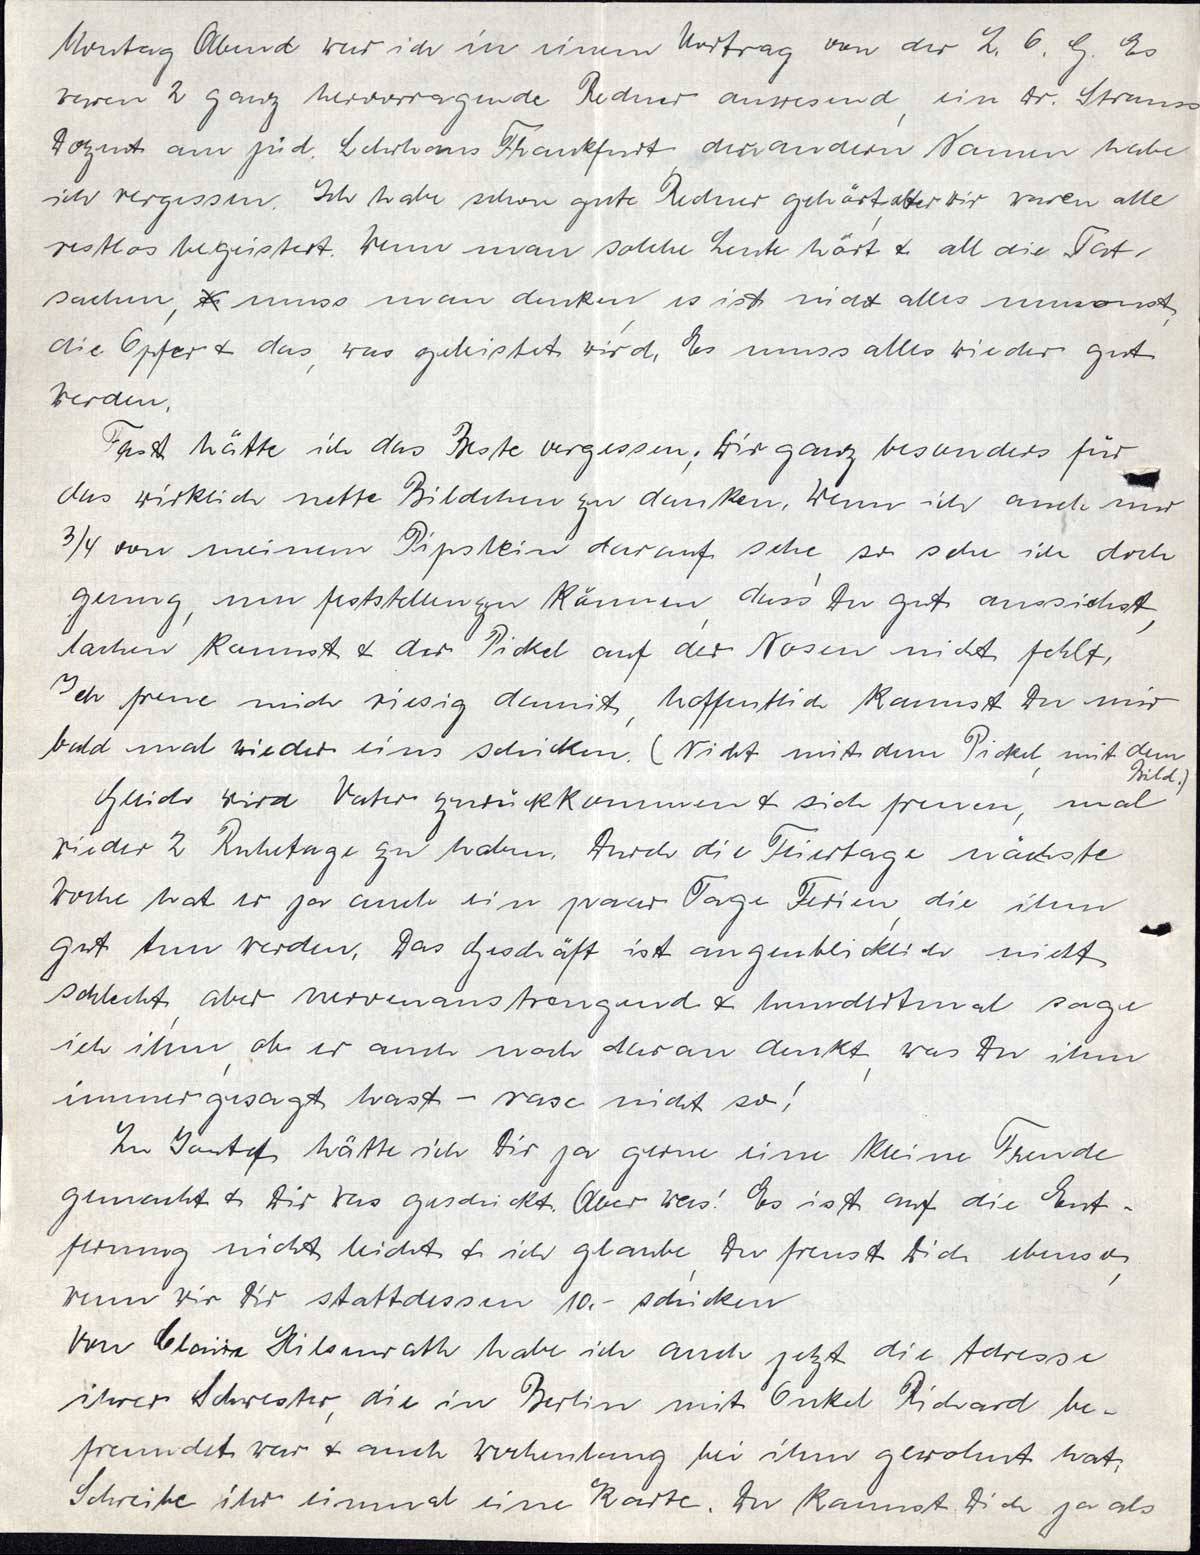 Montag Abend war ich in einem Vortrag von der Z. O. G. Es
waren 2 ganz hervorragende Redner anwesend, ein Dr. Strauss
Dozent am jüd. Lehrhaus Frankfurt, den andern Namen habe
ich vergessen. Ich habe schon gute Redner gehört, aber wir waren alle
restlos begeistert. Wenn man solche Leute hört & all die Tat-
sachen, muss man denken, es ist nicht alles umsonst,
die Opfer & das, was geleistet wird. Es muss alles wieder gut
werden.
Fast hätte ich das Beste vergessen, Dir ganz besonders für
das wirklich nette Bildchen zu danken. Wenn ich auch nur
3/4 von meinem Pipslein darauf sehe, so sehe ich doch
genug, um feststellen zu können, dass Du gut aussiehst,
lachen kannst & der Pickel auf der Nosen nicht fehlt.
Ich freue mich riesig damit, hoffentlich kannst Du mir
bald mal wieder eins schicken. (Nicht mit dem Pickel, mit dem
Bild.)
Gleich wird Vater zurückkommen & sich freuen, mal
wieder 2 Ruhetage zu haben. Durch die Feiertage nächste
Woche hat er ja auch ein paar Tage Ferien, die ihm
gut tun werden. Das Geschäft ist augenblicklich nicht
schlecht, aber nervenanstrengend & hundertmal sage
ich ihm, ob er auch noch daran denkt, was Du ihm
immer gesagt hast – rase nicht so!
Zu hätte ich Dir ja gerne eine kleine Freude
gemacht & Dir was geschickt. Aber was! Es ist auf die Ent-
fernung nicht leicht & ich glaube, Du freust Dich ebenso,
wenn wir Dir stattdessen 10.- schicken
Von Claire Hilsenrath habe ich auch jetzt die Adresse
ihrer Schwester, die in Berlin mit Onkel Richard be-
freundet war & auch wochenlang bei ihm gewohnt hat.
Schreibe ihr einmal eine Karte. Du kannst Dich ja als